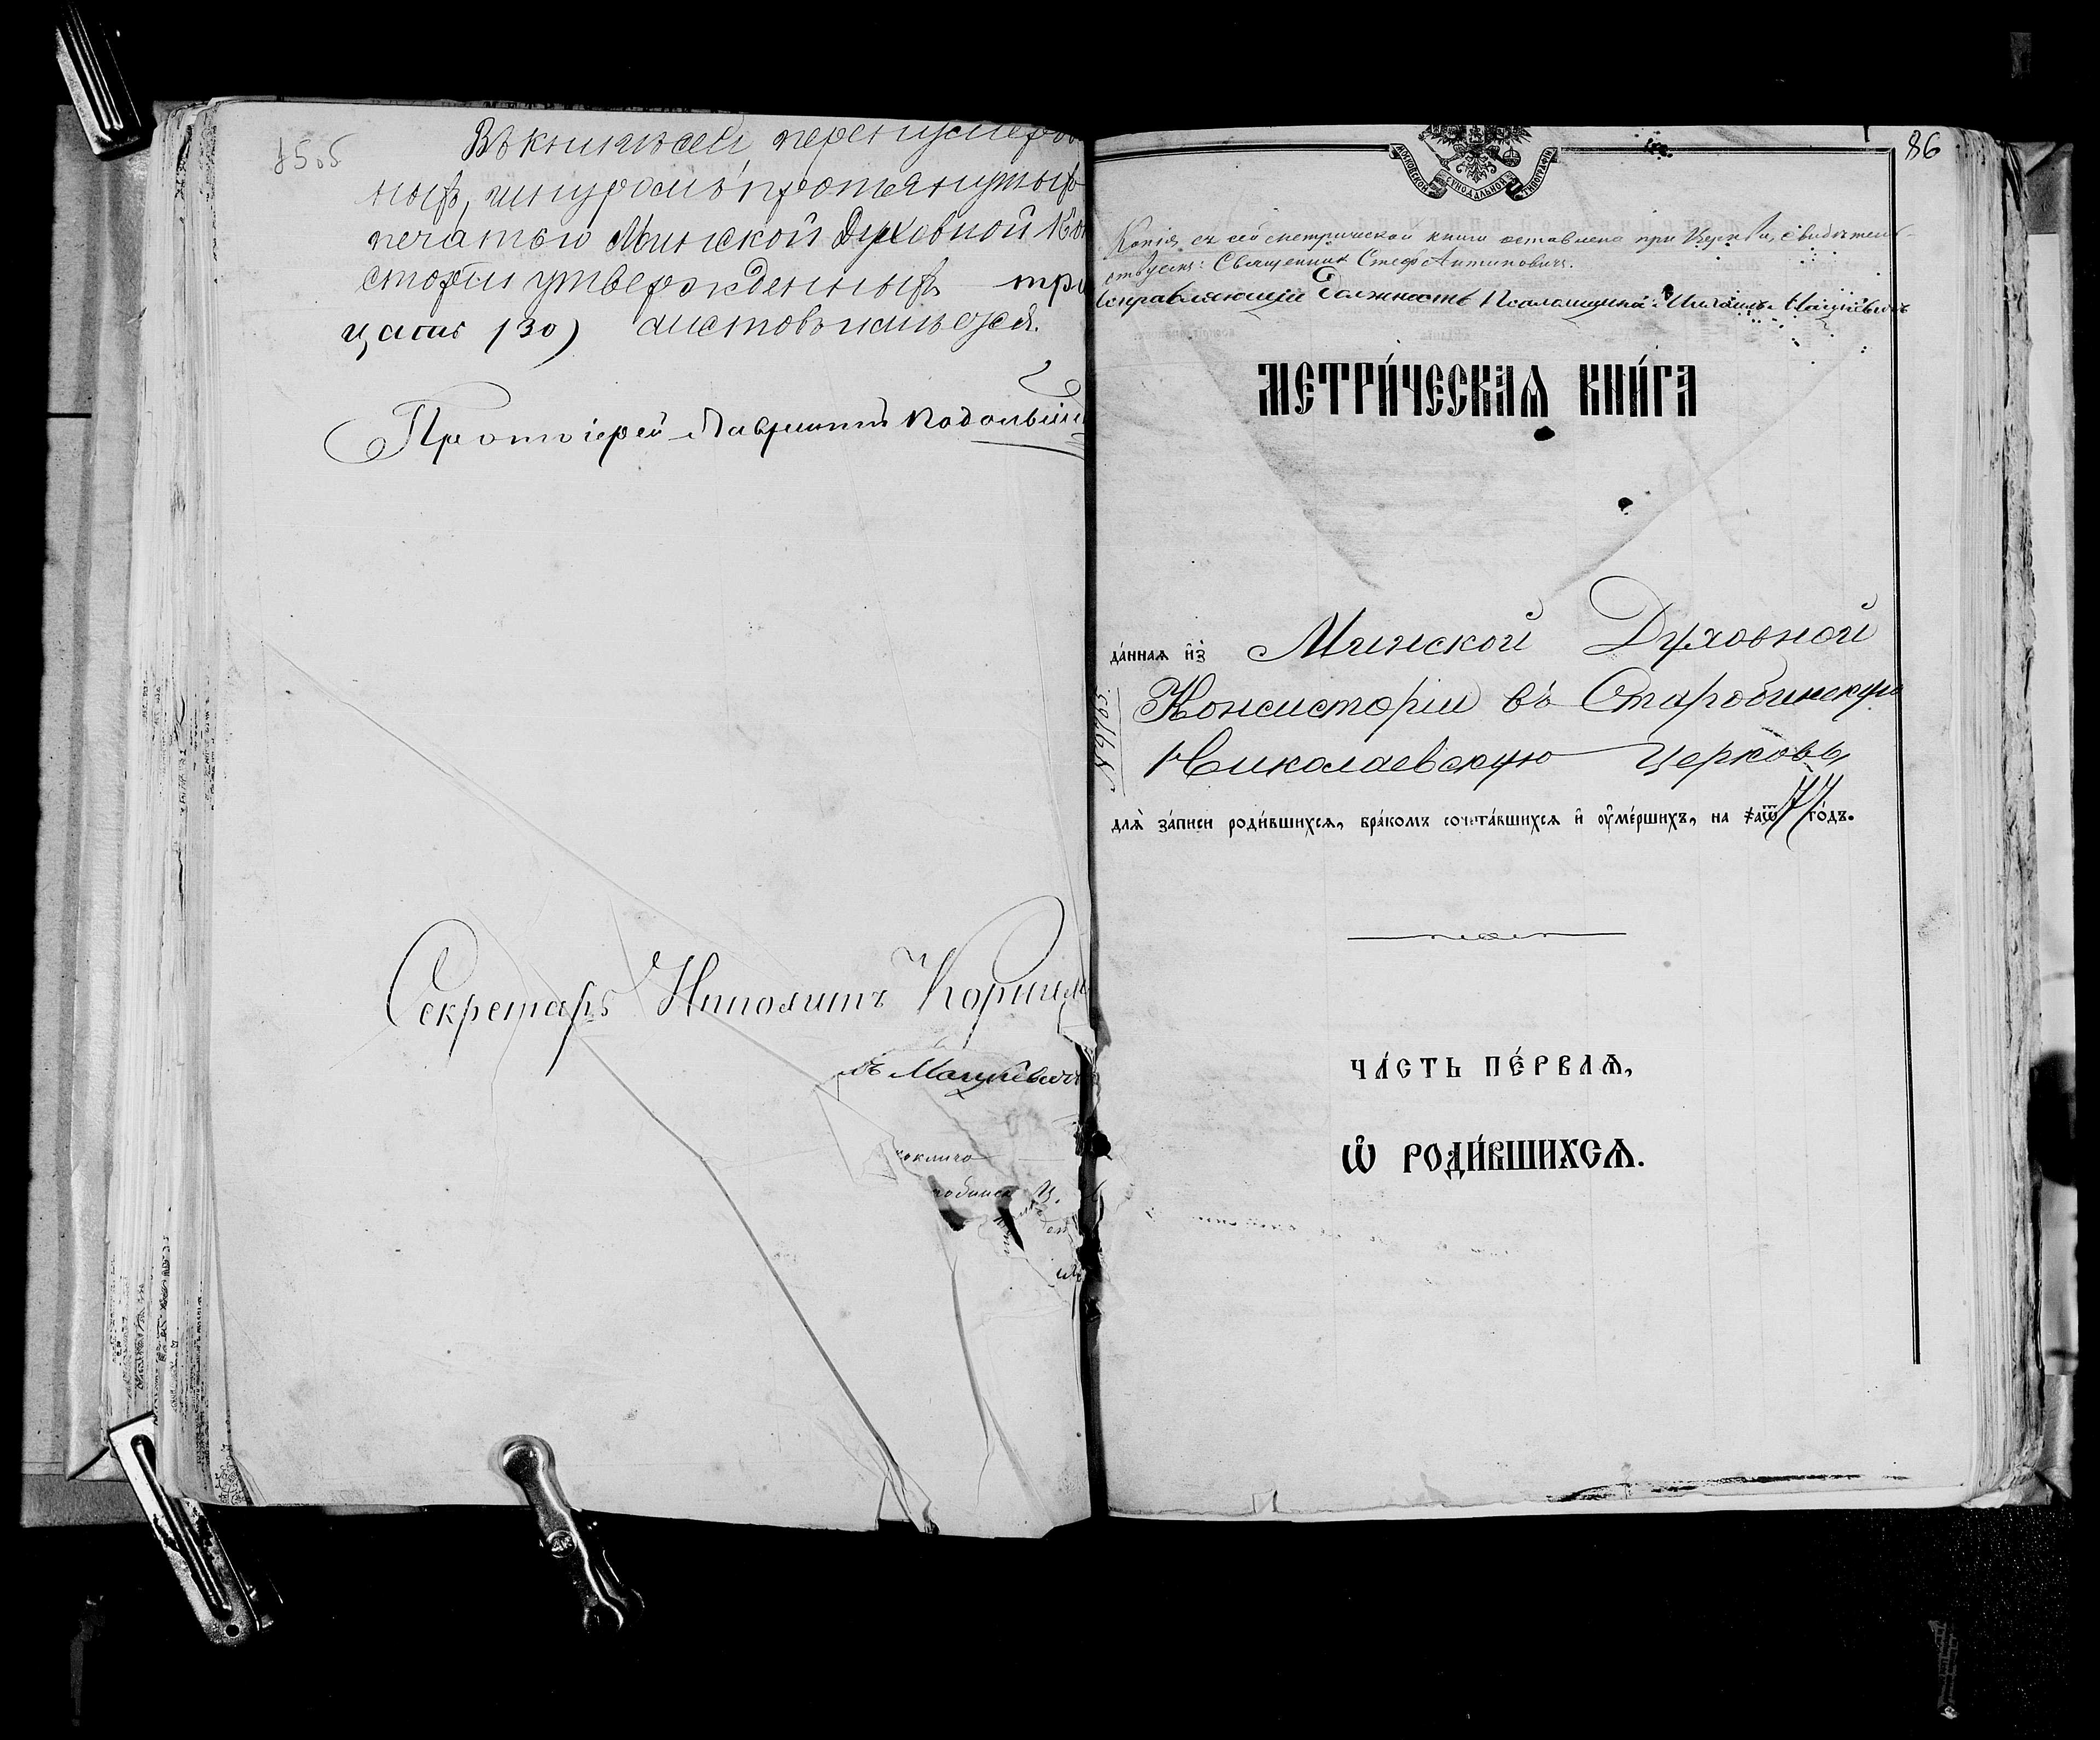 85об
Въ книгѣ сей перенумерован
ныхъ, шнуромъ протянутыхъ
печатью Минской Духовной Кон
сторіи утвержденныхъ три
цать (30) листовъ находится.
Протоіерей Лаврентій Подольскій
Секретарь Ипполитъ Корни
лъ Мацкевичъ
86
МОСКОВСКОЙ СѴНОДАЛЬНОЙ ТИПОГРАФІИ
Копія съ сей метрической книги оставлена при Церкви, свидѣтель
ствуемъ: Священникъ Стеф Антиповичъ.
Исправляющій должность Псаломщика Михаилъ Мацкевичъ
МЕТРИ́ЧЕСКАѦ КНИ́ГА
да́ннаѧ и҆з̾ Минской Духовной
Консисторіи въ Старобинскую
Николаевскую Церковь
№ 9163.
длѧ̀ за́писи роди́вшихсѧ, бра́комъ сочета́вшихсѧ и҆ ᲂу҆ме́ршихъ, на ҂аѿ 77 го́дъ.
ЧА́СТЬ ПЕ́РВАѦ,
Ѡ҆ РОДИ́ВШИХСѦ.